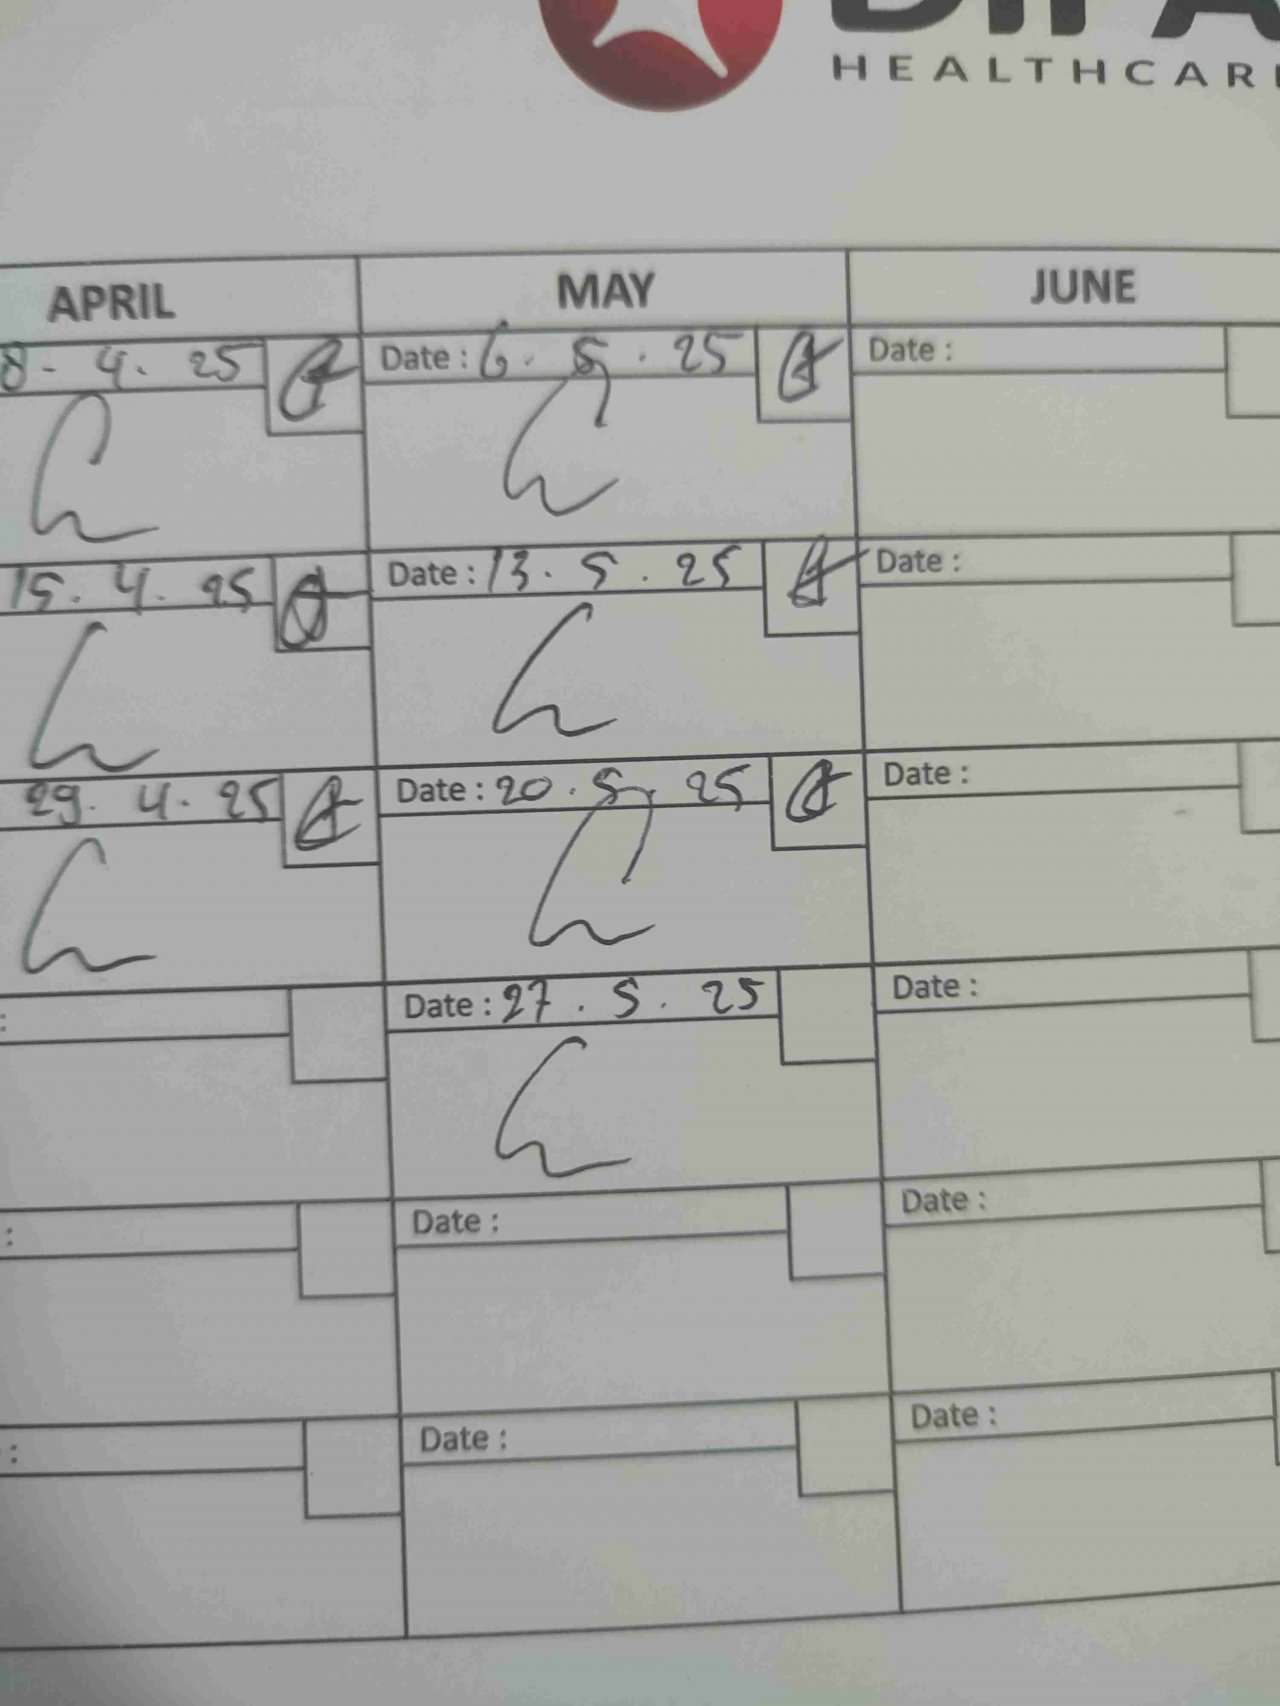 HEALTHCAR
APRIL MAY JUNE
8- 4. 25 Date : 6. 5 . 25 Date :
15. 4. 25 Date : 13. 5 . 25 Date :
29. 4. 25 Date : 20 . 5. 25 Date :
: Date : 27 . 5. 25 Date :
: Date : Date :
: Date : Date :